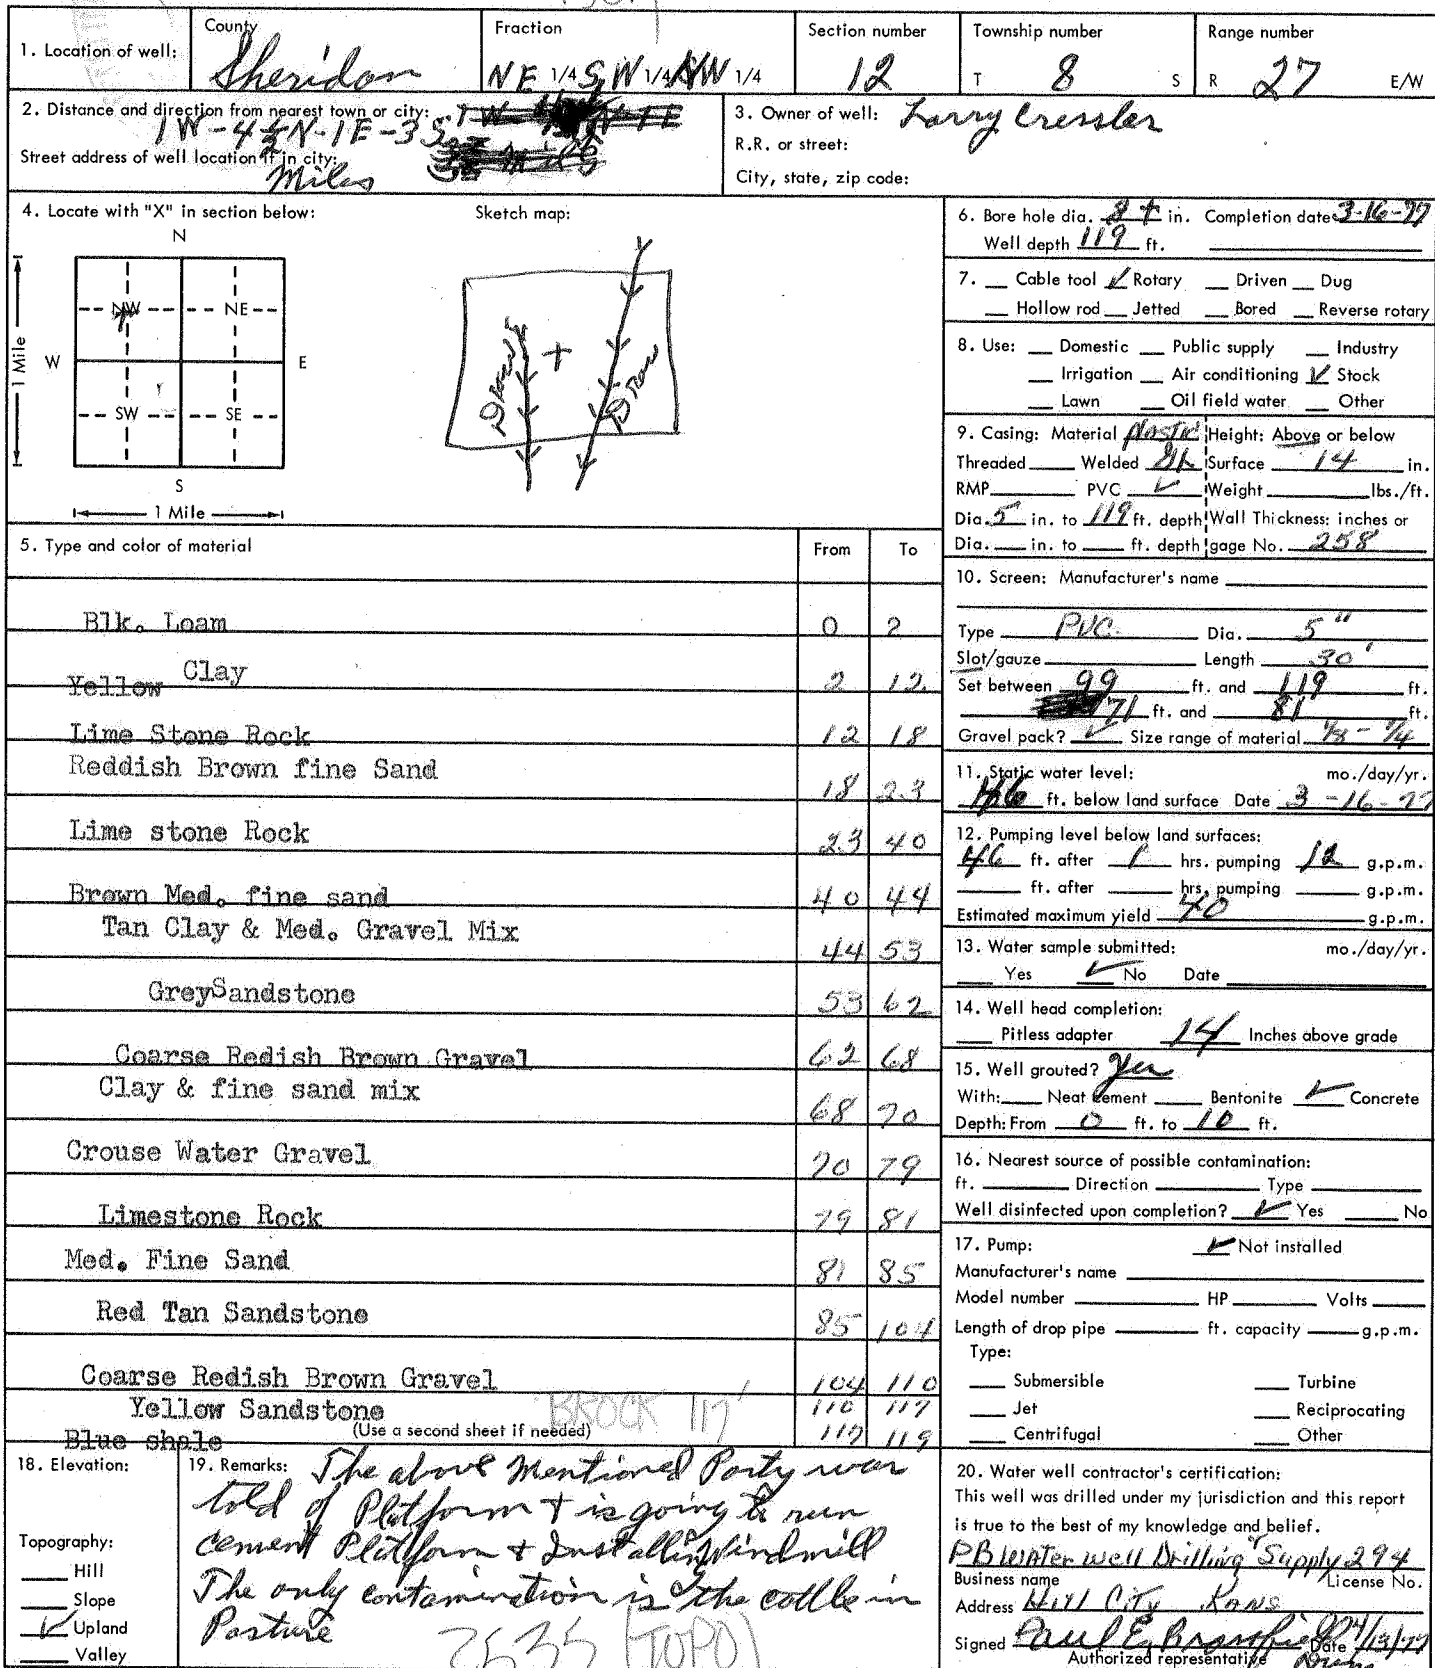 County
Fraction
Section number
Township number
Range number
1. Location of well:
Sheridan
NE 1/4 SW 1/4 NW 1/4
12
T 8 S
R 27 E/W
2. Distance and direction from nearest town or city:
1W-4½N-1E-3S
Street address of well location if in city:
Miles
3. Owner of well: Larry Cressler
R.R. or street:
City, state, zip code:
4. Locate with "X" in section below:
Sketch map:
N
NW NE
W E
SW SE
S
1 Mile
1 Mile
Draw
Draw
5. Type and color of material From To
Blk. Loam 0 2
Yellow Clay 2 12
Lime Stone Rock 12 18
Reddish Brown fine Sand 18 23
Lime stone Rock 23 40
Brown Med. fine sand 40 44
Tan Clay & Med. Gravel Mix 44 53
Grey Sandstone 53 62
Coarse Redish Brown Gravel 62 68
Clay & fine sand mix 68 70
Crouse Water Gravel 70 79
Limestone Rock 79 81
Med. Fine Sand 81 85
Red Tan Sandstone 85 104
Coarse Redish Brown Gravel 104 110
Yellow Sandstone 110 117
BROCK 117'
(Use a second sheet if needed)
Blue shale 117 119
6. Bore hole dia. 8+ in. Completion date 3-16-77
Well depth 119 ft.
7. Cable tool ✓ Rotary Driven Dug
Hollow rod Jetted Bored Reverse rotary
8. Use: Domestic Public supply Industry
Irrigation Air conditioning ✓ Stock
Lawn Oil field water Other
9. Casing: Material Plastic Height: Above or below
Threaded Welded Surface 14 in.
RMP PVC ✓ Weight lbs./ft.
Dia. 5 in. to 119 ft. depth Wall Thickness: inches or
Dia. in. to ft. depth gage No. 258
10. Screen: Manufacturer's name
Type PVC Dia. 5"
Slot/gauze Length 30'
Set between 99 ft. and 119 ft.
71 ft. and 81 ft.
Gravel pack? ✓ Size range of material
11. Static water level: mo./day/yr.
46 ft. below land surface Date 3-16-77
12. Pumping level below land surfaces:
46 ft. after 1 hrs. pumping 12 g.p.m.
ft. after hrs. pumping g.p.m.
Estimated maximum yield 40 g.p.m.
13. Water sample submitted: mo./day/yr.
Yes ✓ No Date
14. Well head completion:
Pitless adapter 14 Inches above grade
15. Well grouted? Yes
With: Neat cement Bentonite ✓ Concrete
Depth: From 0 ft. to 10 ft.
16. Nearest source of possible contamination:
ft. Direction Type
Well disinfected upon completion? ✓ Yes No
17. Pump: ✓ Not installed
Manufacturer's name
Model number HP Volts
Length of drop pipe ft. capacity g.p.m.
Type:
Submersible Turbine
Jet Reciprocating
Centrifugal Other
18. Elevation:
Topography:
Hill
Slope
✓ Upland
Valley
19. Remarks: The above Mentioned Party was
told of Platform + is going to run
cement Platform + Installing Windmill
The only contamination is the cattle in
Pasture
2535 (TOPO)
20. Water well contractor's certification:
This well was drilled under my jurisdiction and this report
is true to the best of my knowledge and belief.
PB Water well Drilling & Supply 294
Business name License No.
Address Hill City Kans
Signed Paul E. Date 4/13/77
Authorized representative